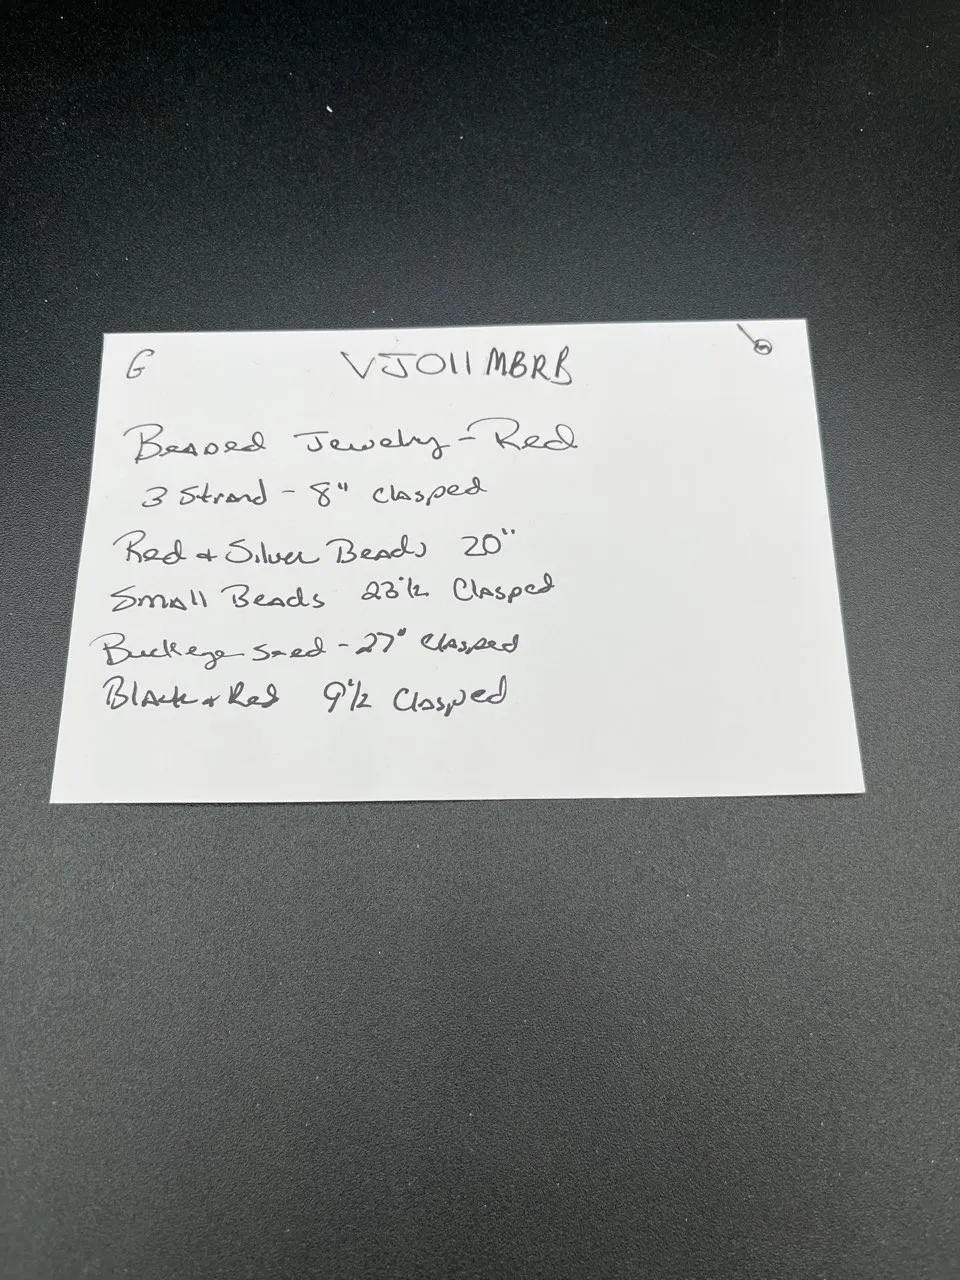 G VJ011MBRB
Beaded Jewelry - Red
3 Strand - 8" clasped
Red + Silver Beads 20"
Small Beads 23"1/2 Clasped
Buckeye seed - 27" Clasped
Black + Red 9"1/2 Clasped